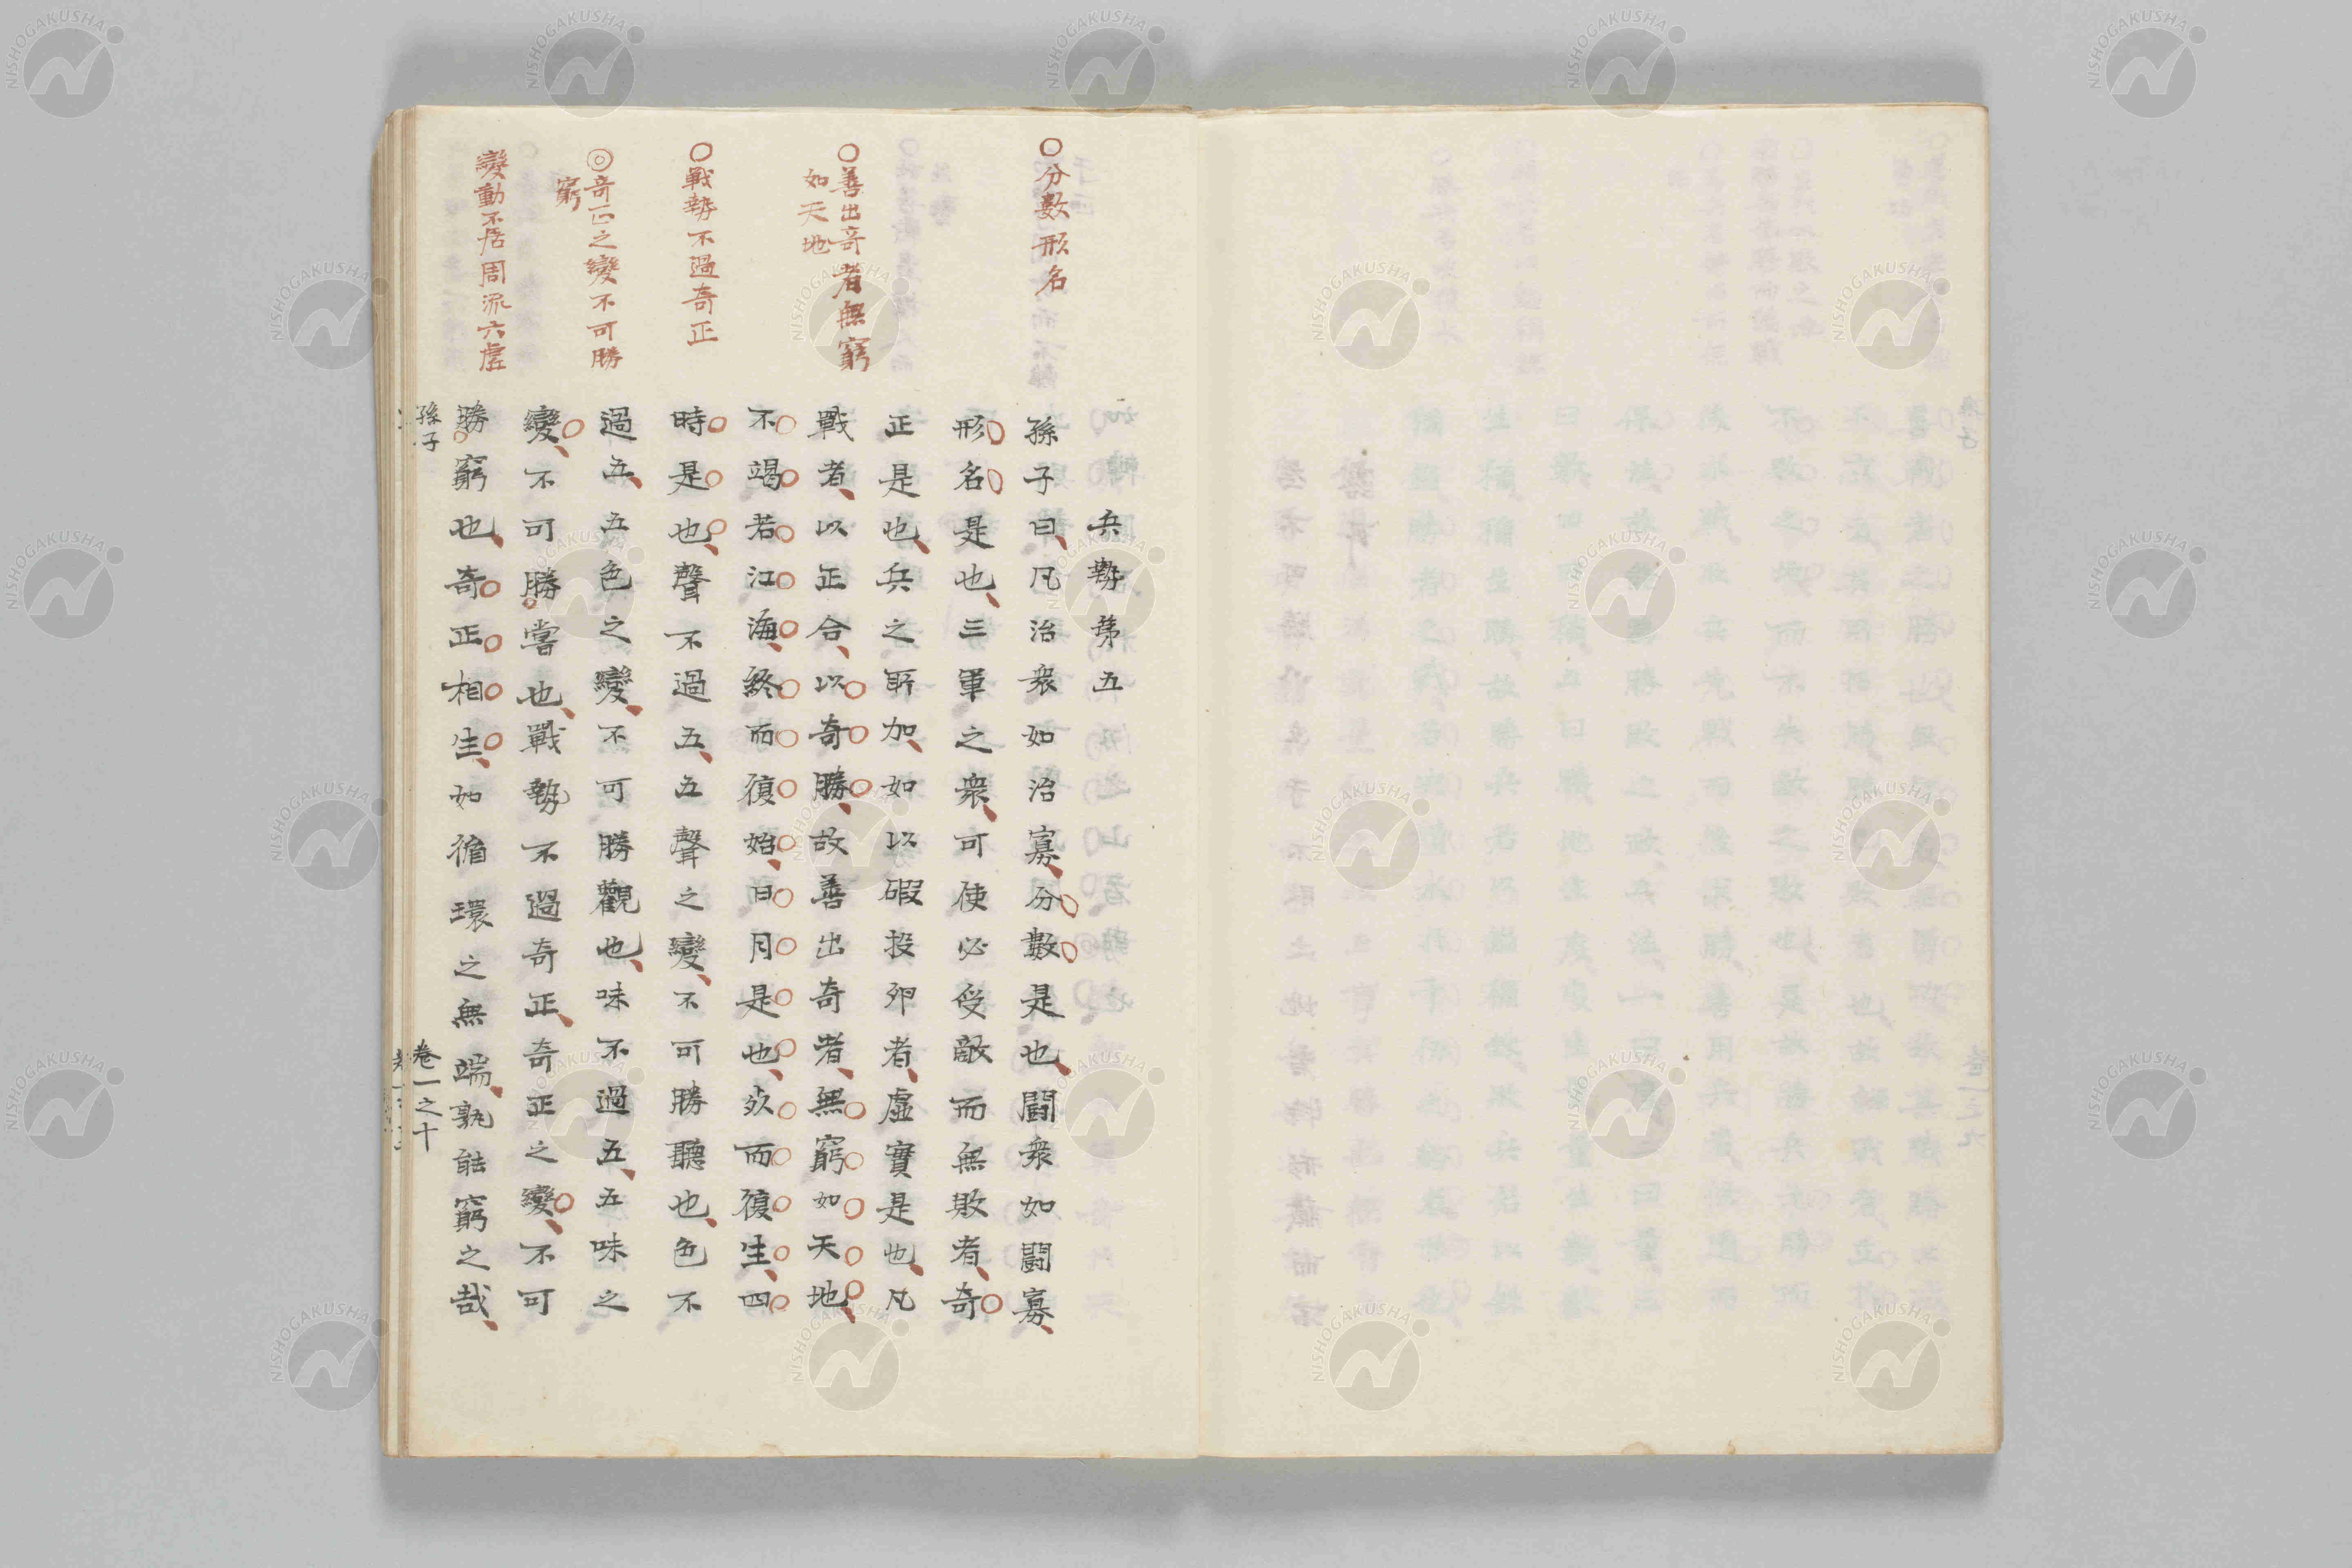 ○分數形名
○善出奇者無窮
如天地
○戰勢不過奇正
◎奇正之變不可勝
窮
變動不居周流六虛
兵勢第五
孫子曰、凡治衆如治寡、分數是也、鬪衆如鬪寡、
形名是也、三軍之衆、可使必受敵而無敗者、奇
正是也、兵之所加、如以碬投卵者、虛實是也、凡
戰者、以正合、以奇勝、故善出奇者、無窮如天地、
不竭若江海、終而復始、日月是也、死而復生、四
時是也、聲不過五、五聲之變、不可勝聽也、色不
過五、五色之變、不可勝觀也、味不過五、五味之
變、不可勝嘗也、戰勢不過奇正、奇正之變、不可
勝窮也、奇正相生、如循環之無端、孰能窮之哉、
孫子
卷一之十
NISHOGAKUSHA